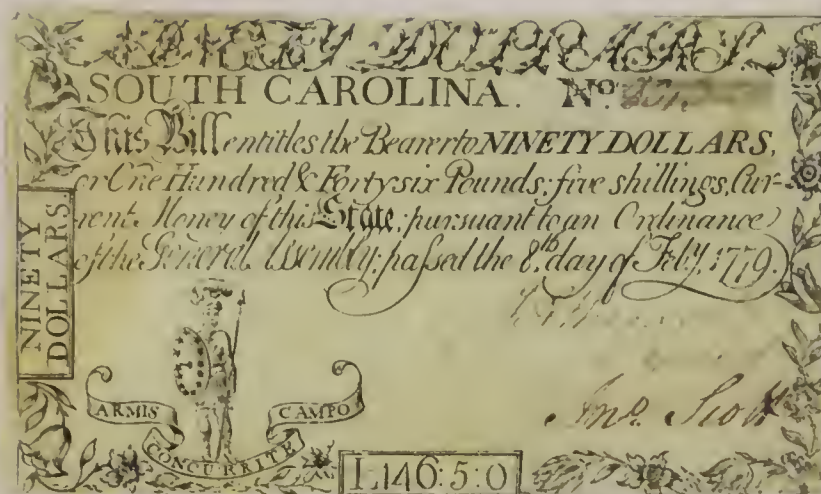 NINETY DOLLARS.
SOUTH CAROLINA. No.
This Bill entitles the Bearer to NINETY DOLLARS,
or One Hundred & Forty six Pounds; five shillings, Cur-
rent Money of this State; pursuant to an Ordinance
of the General Assembly; passed the 8th. day of Feby. 1779.
NINETY
DOLLARS.
Jno. Scott
ARMIS CONCURRITE CAMPO
L146:5:0